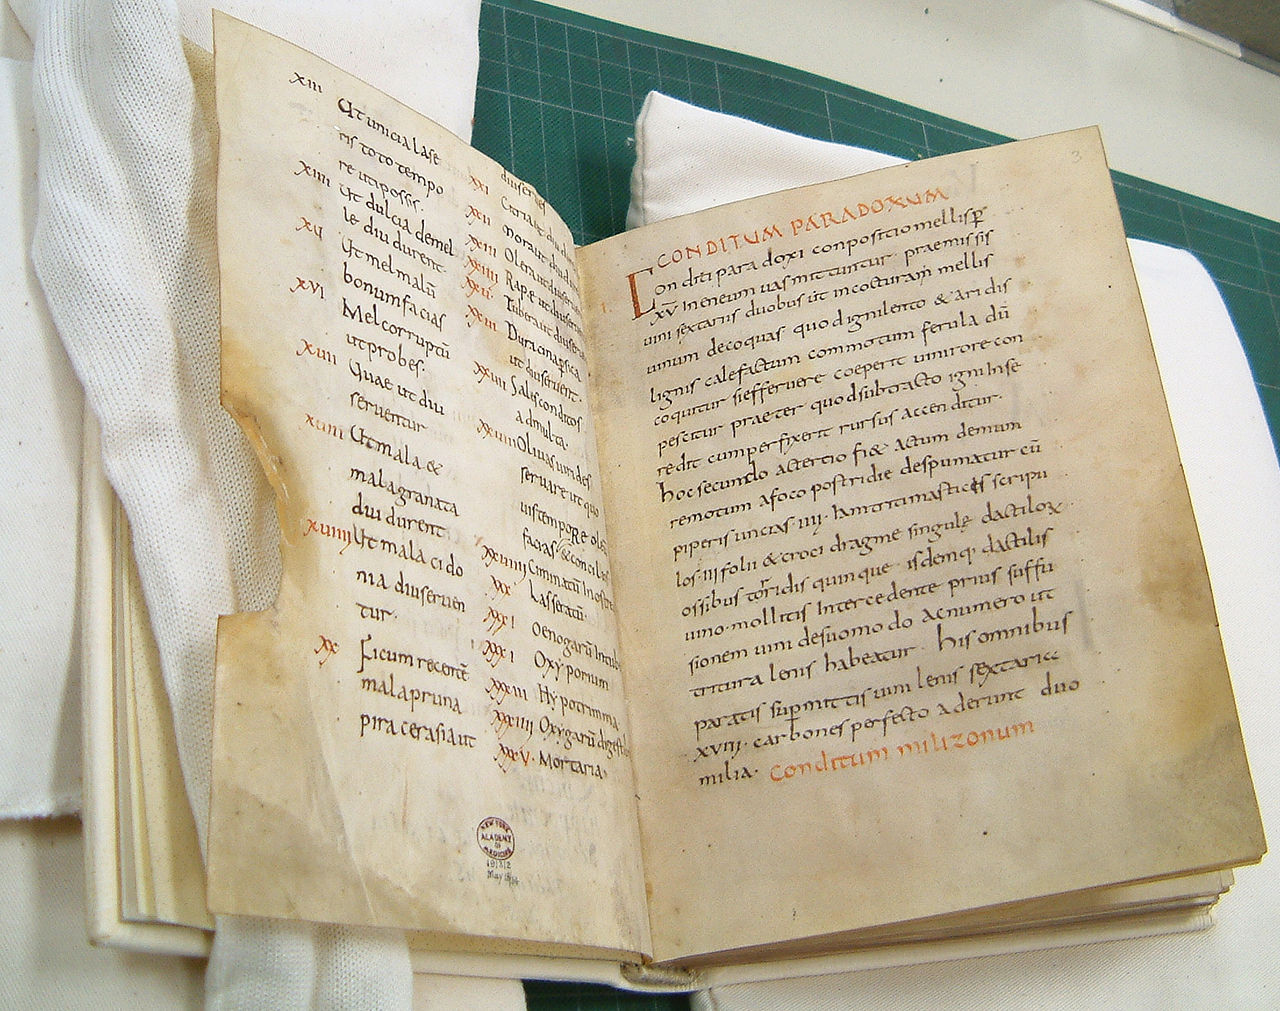 XIII Ut uncia lase
ris toto tempo
re uti possis.
XIIII Ut dulcia demel
le diu durent.
XV Ut mel malū
bonum facias
XVI Mel corruptū
ut probes.
XVII Quae ut diu
serventur
XVIII Ut mala &
mala granata
diu durent
XVIIII Ut mala cido
nia diu serven
tur.
XX Ficum recentē
mala pruna
pira cerasia ut
diu serves
XXI
XXII
XXIII Olera ut diu
XXIIII Rapæ ut diu
Tubera ut diu
Duracina persica
ut diu serves.
Sal conditos
ad multa.
Olivas virides
servare ut quo
vis tempore oleum
facias & condi
Cuminatū In ostre
XXX Laseratū.
XXXI Oenogarū In tub
Oxyporium
XXXIII Hypotrimma
XXXIIII Oxygarū digest
XXXV. Mortaria.
NEW YORK
ACADEMY
OF
MEDICINE
3
CONDITUM PARADOXUM
I. Conditi paradoxi conpositio mellis p̄
XV In eneum vas mittuntur praemissis
vini sextariis duobus ut in cocturam mellis
vinum decoquas quod igni lento & aridis
lignis calefactum commotum ferula dū
coquitur si effervere coeperit vini rore con
pescitur praeter quod subtracto igni In se
redit cum perfrixerit rursus accenditur.
hoc secundo ac tertio fi& ac tum demum
remotum a foco postridie despumatur cū
piperis uncias IIII. Iam triti masticis scripu
los III folii & croci dragme singulę dactilor
ossibus torridis quinque isdemq; dactilis
vino mollitis Intercedente prius suffu
sionem vini de suo modo ac numero ut
tritura lenis habeatur. his omnibus
paratis supmittis vini lenis sextaria
XVIII. carbones perfecto aderunt duo
milia. Conditum milizonum